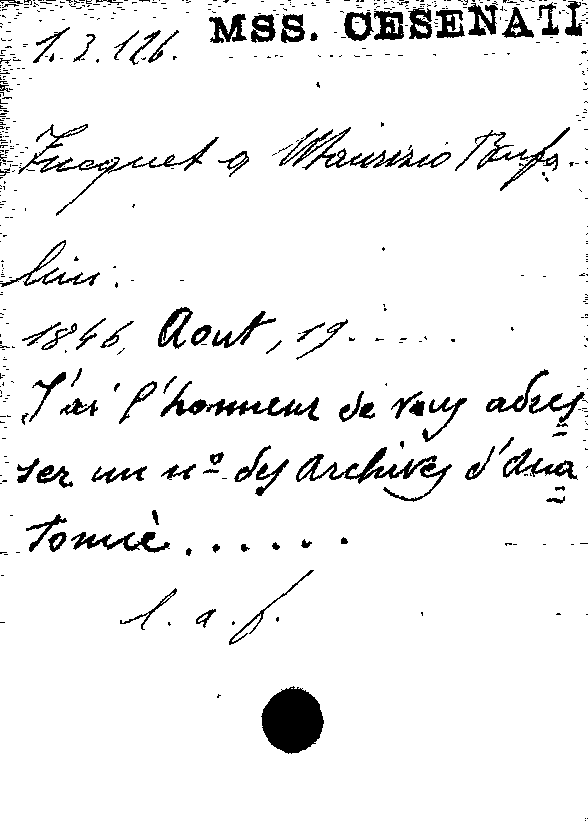 1.3.126. MSS. CESENATI
Jucquet a Maurizio Bufa.
lini.
1846, Aout, 19.....
J'ai l'honneur de vous adres=
ser un nº des archives d'ana=
tomiè......
l. a. f.